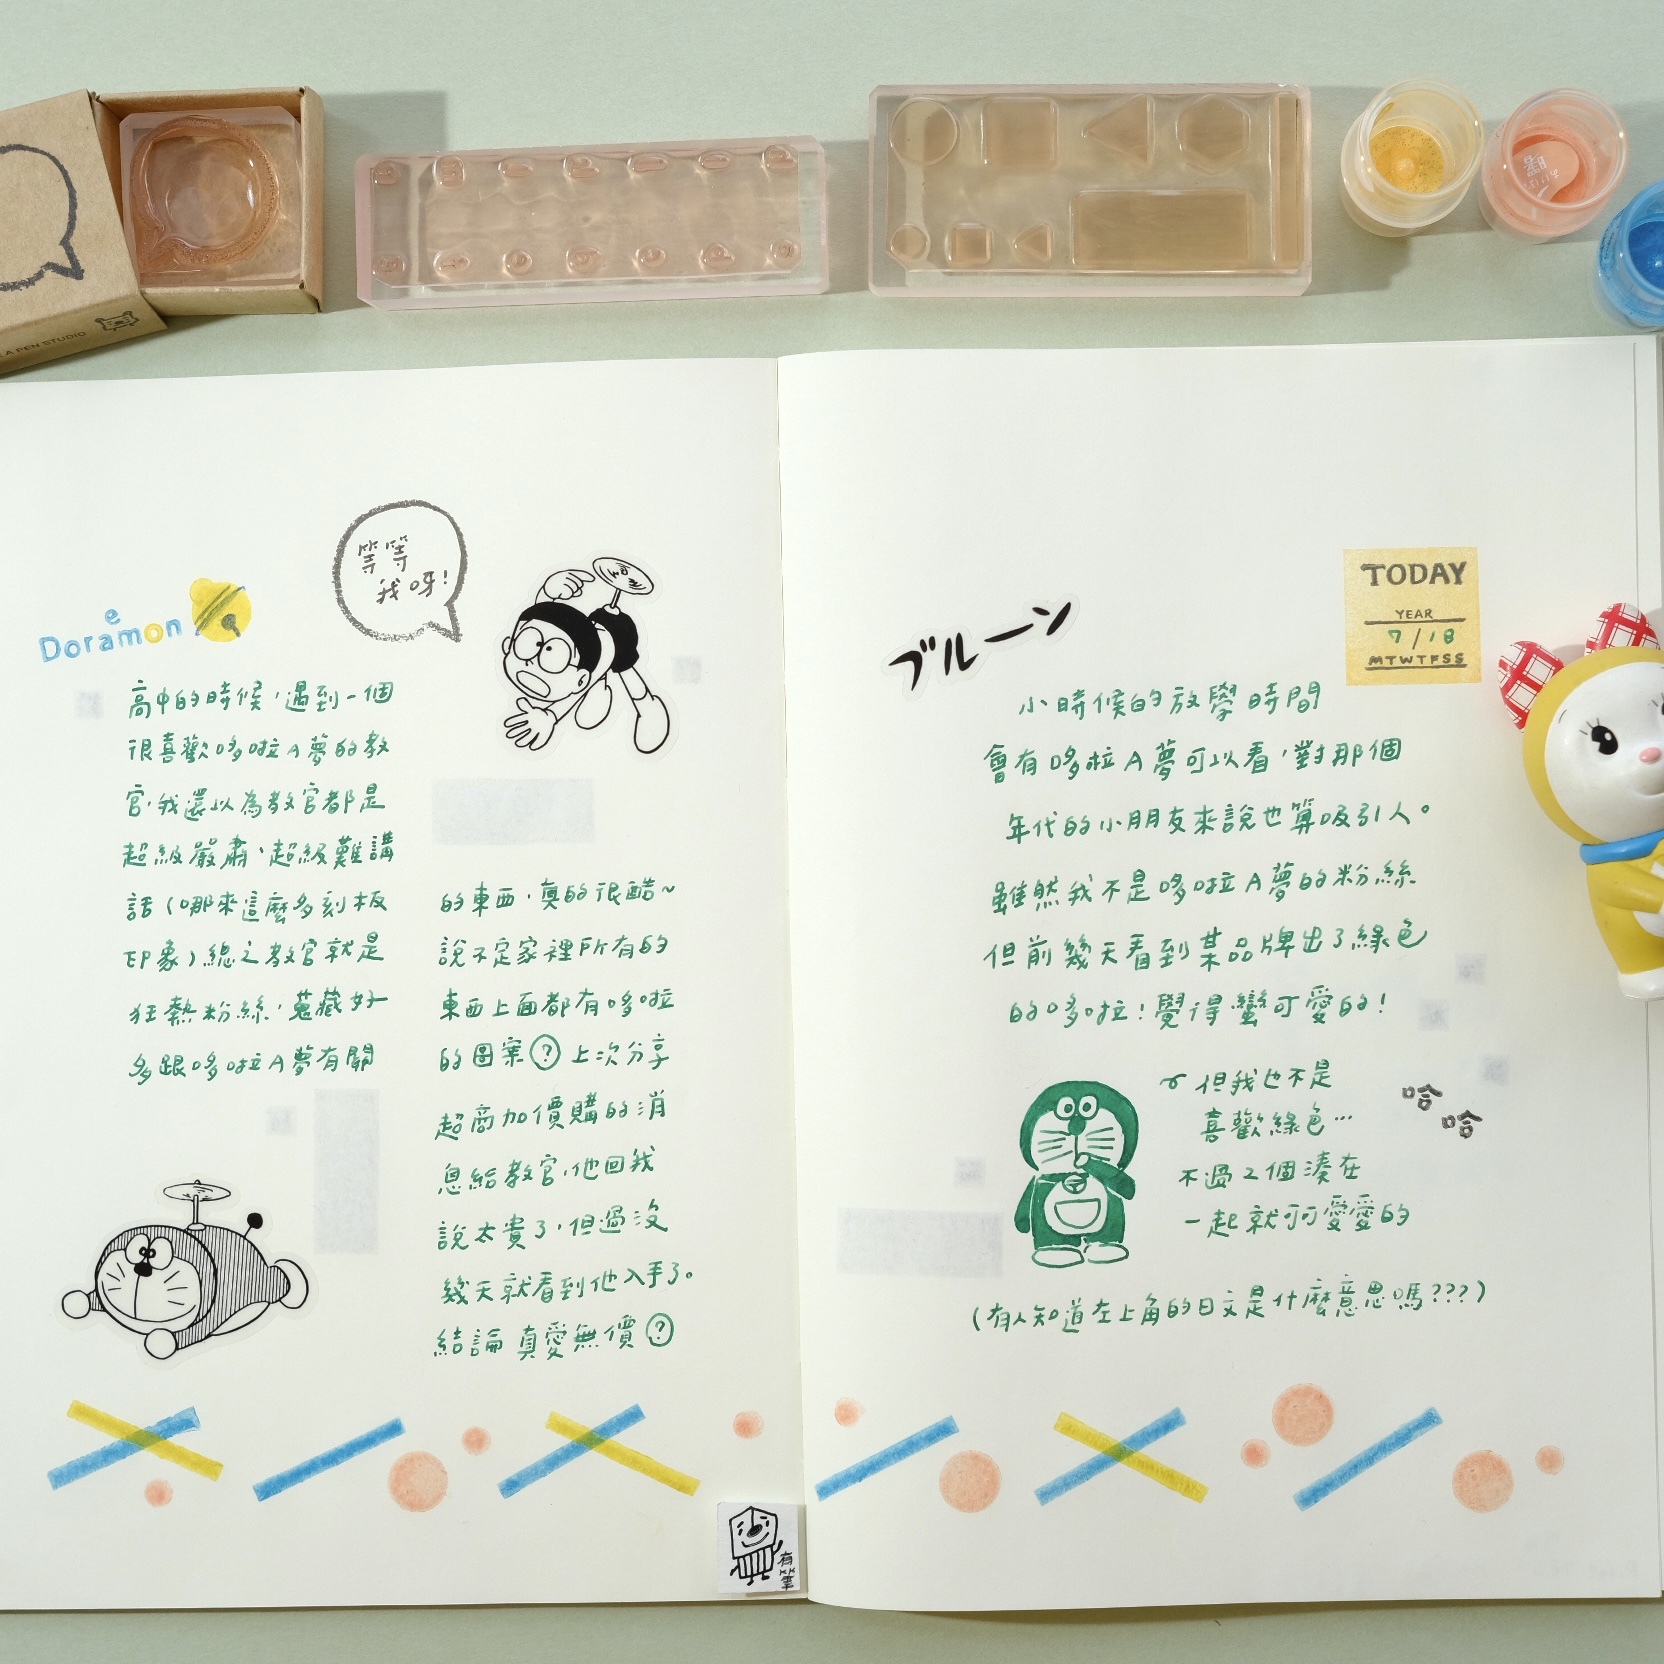 A PEN STUDIO
Doramon
e
等等
我呀!
高中的時候,遇到一個
很喜歡哆啦A夢的教
官,我還以為教官都是
超級嚴肅、超級難講
話(哪來這麼多刻板
印象)總之教官就是
狂熱粉絲,蒐藏好
多跟哆啦A夢有關
的東西,真的很酷~
說不定家裡所有的
東西上面都有哆啦
的圖案?上次分享
超商加價購的消
息給教官,他回我
說太貴了,但過沒
幾天就看到他入手了。
結論 真愛無價?
有筆
ブルーン
TODAY
YEAR
7/18
MTWTFSS
小時候的放學時間
會有哆啦A夢可以看,對那個
年代的小朋友來說也算吸引人。
雖然我不是哆啦A夢的粉絲
但前幾天看到某品牌出了綠色
的哆啦!覺得蠻可愛的!
但我也不是
喜歡綠色…
不過2個湊在
一起就可可愛愛的
哈
哈
(有人知道左上角的日文是什麼意思嗎???)